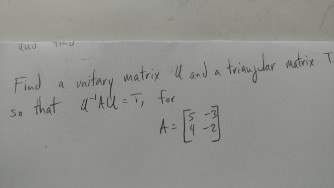 and find
Find a unitary matrix U and a triangular matrix T
so that U⁻¹AU = T, for
A = [5 -3
4 -2]